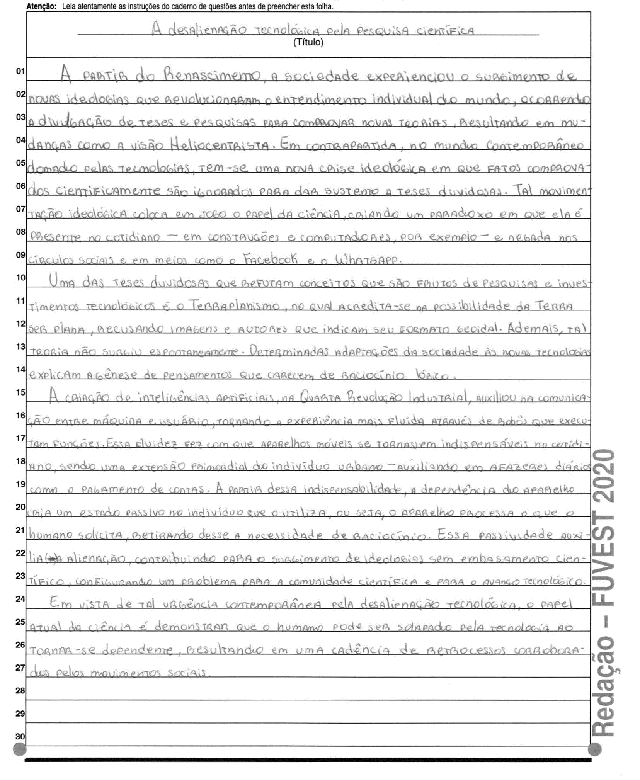 Atenção: Leia atentamente as instruções do caderno de questões antes de preencher esta folha.
A desalienação tecnológica pela pesquisa científica
(Título)
01 A partir do Renascimento, a sociedade experienciou o surgimento de
02 novas ideologias que revolucionaram o entendimento individual do mundo, ocorrendo
03 a divulgação de teses e pesquisas para comprovar novas teorias, resultando em mu-
04 danças como a visão Heliocentrista. Em contrapartida, no mundo contemporâneo
05 domado pelas tecnologias, tem-se uma nova crise ideológica em que fatos comprova-
06 dos cientificamente são ignorados para dar sustento a teses duvidosas. Tal movimen-
07 tação ideológica coloca em jogo o papel da ciência, criando um paradoxo em que ela é
08 presente no cotidiano – em construções e computadores, por exemplo – e negada nos
09 círculos sociais e em meios como o Facebook e o WhatsApp.
10 Uma das teses duvidosas que refutam conceitos que são frutos de pesquisas e inves-
11 timentos tecnológicos é o Terraplanismo, no qual acredita-se na possibilidade da Terra
12 ser plana, recusando imagens e autores que indicam seu formato geoidal. Ademais, tal
13 teoria não surgiu espontaneamente. Determinadas adaptações da sociedade às novas tecnologias
14 explicam a gênese de pensamentos que carecem de raciocínio lógico.
15 A criação de inteligências artificiais, na Quarta Revolução Industrial, auxiliou na comunica-
16 ção entre máquina e usuário, tornando a experiência mais fluida através de robôs que execu-
17 tam funções. Essa fluidez fez com que aparelhos móveis se tornassem indispensáveis no cotidi-
18 ano, sendo uma extensão primordial do indivíduo urbano – auxiliando em afazeres diários
19 como o pagamento de contas. A partir dessa indispensabilidade, a dependência do aparelho
20 cria um estado passivo no indivíduo que o utiliza, ou seja, o aparelho processa o que o
21 humano solicita, retirando desse a necessidade de raciocínio. Essa passividade auxi-
22 lia alienação, contribuindo para o surgimento de ideologias sem embasamento cien-
23 tífico, configurando um problema para a comunidade científica e para o avanço tecnológico.
24 Em vista de tal urgência contemporânea pela desalienação tecnológica, o papel
25 atual da ciência é demonstrar que o humano pode ser solapado pela tecnologia ao
26 tornar-se dependente, resultando em uma cadência de retrocessos corrobora-
27 dos pelos movimentos sociais.
28
29
30
Redação – FUVEST 2020